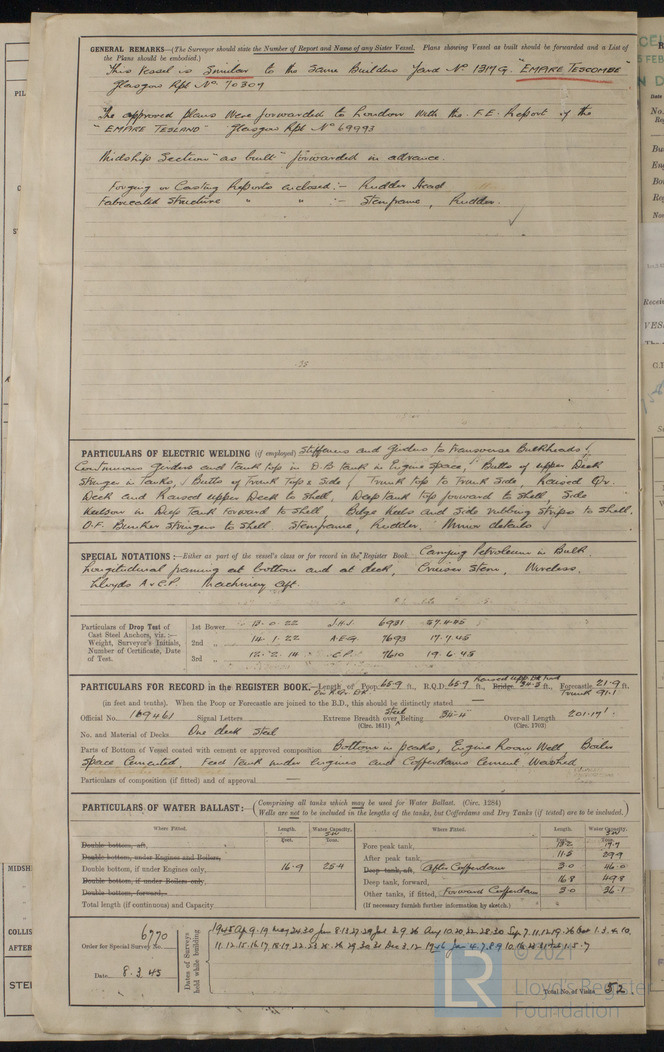 GENERAL REMARKS—(The Surveyor should state the Number of Report and Name of any Sister Vessel. Plans showing Vessel as built should be forwarded and a List of
the Plans should be embodied.)
This Vessel is Similar to the Same Builders Yard No 1317G. "EMPIRE TESCOMBE"
Glasgow Rpt No. 70309
The approved plans were forwarded to London with the F.E. Report of the
"EMPIRE TESLAND" Glasgow Rpt No 69993
Midship Section "as built" forwarded in advance.
Forging or Casting Reports enclosed:- Rudder Head
Fabricated Structure " " :- Sternframe, Rudder.
PARTICULARS OF ELECTRIC WELDING (if employed) Stiffeners and Girders to Transverse Bulkheads;
Continuous Girders and tank top in D.B tank in Engine space, Butts of upper Deck
Stringer in Tanks, Butts of Trunk Top & Side, Trunk top to Trunk Side, Raised Qr.
Deck and Raised upper Deck to shell, Deep tank top forward to shell, Side
Keelson in Deep Tank forward to shell, Bilge Keels and Side rubbing strips to shell.
O.F. Bunker Stringers to shell Sternframe, Rudder. Minor details
SPECIAL NOTATIONS:—Either as part of the vessel's class or for record in the Register Book. Carrying Petroleum in Bulk.
Longitudinal framing at bottom and at deck, Cruiser Stern, Wireless,
Lloyds A & C.P. Machinery aft.
Particulars of Drop Test of
Cast Steel Anchors, viz.:—
Weight, Surveyor's Initials,
Number of Certificate, Date
of Test.
1st Bower 13.0.22 J.H.S. 6931 27.4.45
2nd " 14.1.22 A.E.G. 7693 17.7.45
3rd " 12.2.14 C.P. 7610 19.6.45
PARTICULARS FOR RECORD in the REGISTER BOOK.—Length of Poop 65.9 ft., R.Q.D. 65.9 ft., Raised Upp. Dk Fwd Bridge 34.3 ft., Forecastle 21.9 ft.
On R.Qr. Dk. Trunk 91.1
(in feet and tenths). When the Poop or Forecastle are joined to the B.D., this should be distinctly stated —
Official No. 169461 Signal Letters Extreme Breadth over Steel Belting 34.4 Over-all Length 201.17'
(Circ. 1611) (Circ. 1703)
No. and Material of Decks One deck Steel
Parts of Bottom of Vessel coated with cement or approved composition Bottom in peaks, Engine Room Well, Boiler
Space Cemented. Feed tank under engines and Cofferdams Cement Washed
Particulars of composition (if fitted) and of approval —
PARTICULARS OF WATER BALLAST:— (Comprising all tanks which may be used for Water Ballast. (Circ. 1284)
Wells are not to be included in the lengths of the tanks, but Cofferdams and Dry Tanks (if tested) are to be included.)
Where Fitted. Length. Water Capacity. Where Fitted. Length. Water Capacity.
Feet. Tons. Feet. Tons.
Double bottom, aft, Fore peak tank, 13.2 19.7
Double bottom, under Engines and Boilers, After peak tank, 11.5 29.9
Double bottom, if under Engines only, 16.9 25.4 Deep tank, aft, After Cofferdam 3.0 46.0
Double bottom, if under Boilers only, Deep tank, forward, 16.8 49.8
Double bottom, forward, Other tanks, if fitted, Forward Cofferdam 3.0 36.1
Total length (if continuous) and Capacity (If necessary furnish further information by sketch.)
Order for Special Survey No. 6770
Date 8.3.45
Dates of Surveys held while building
1945 Apr 9.19 May 24.30 Jun 8.13.27.29 Jul 3.9.26 Aug 10.20.22.28.30 Sep 7.11.12.19.26 Oct 1.3.4.10.
Total No. of Visits 52
© 2021
Lloyd's Register
Foundation
LR